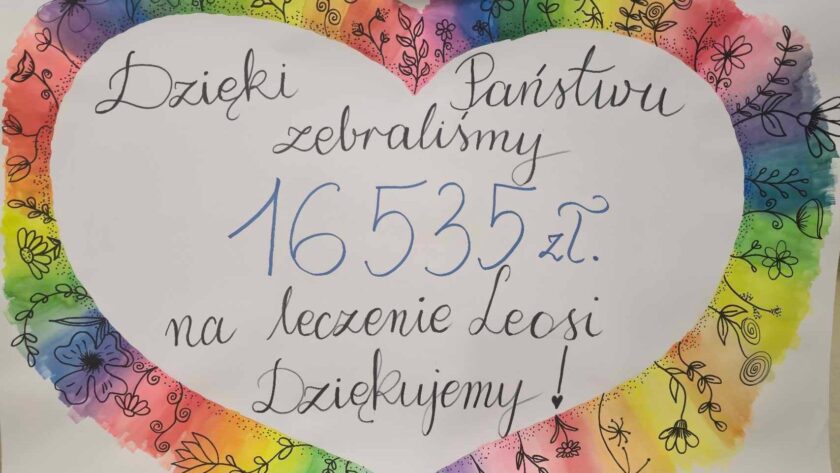 Dzięki Państwu
zebraliśmy
16535 zł.
na leczenie Leosi
Dziękujemy!